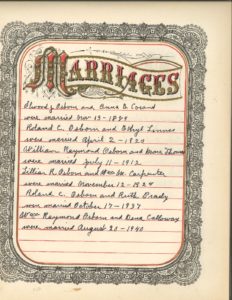 MARRIAGES
Elwood J Osborn and Anna E Cosand
were married Nov 13 - 1890
Roland C. Osborn and Ethyl Linner
were married April 2 - 1920
William Raymond Osborn and Thomas
were married July 11 - 1912
Lillian R. Osborn and Carpenter
were married November 12 - 1924
Roland C. Osborn and Ruth Brady
were married October 17 - 1937
Wm Raymond Osborn and Rena Calloway
were married August 23 - 1940